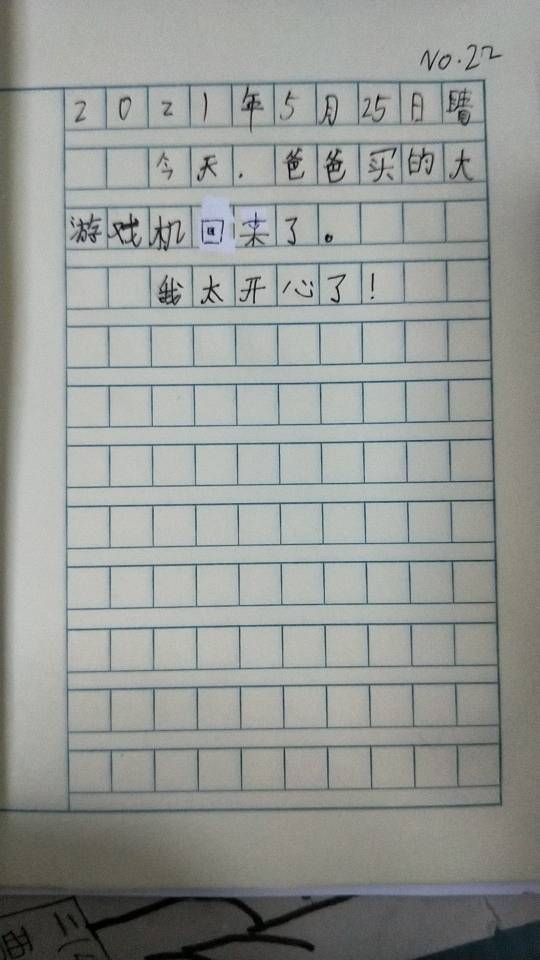 No.22
2021年5月25日晴
今天.爸爸买的大
游戏机回来了。
我太开心了!